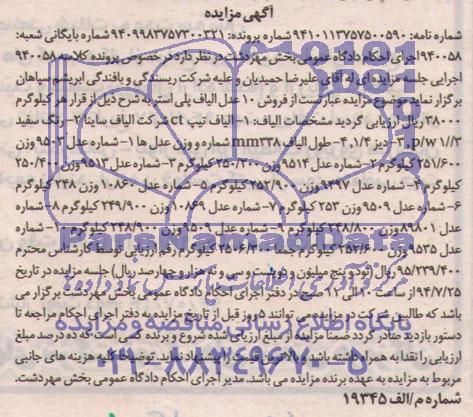 آگهی مزایده
شماره نامه: ۹۴۱۰۱۱۳۷۵۷۵۰۰۵۹۰ شماره پرونده: ۹۴۰۹۹۸۳۷۵۷۳۰۰۳۲۱ شماره بایگانی شعبه:
۹۴۰۰۵۸ اجرای احکام دادگاه عمومی بخش مهردشت در نظر دارد در خصوص پرونده کلاسه ۹۴۰۰۵۸
اجرایی جلسه مزایده ای له آقای علیرضا حمیدیان و علیه شرکت ریسندگی و بافندگی ابریشم سپاهان
برگزار نماید موضوع مزایده عبارتست از فروش ۱۰ عدل الیاف پلی استر به شرح ذیل از قرار هر کیلوگرم
۳۸۰۰۰ ریال ارزیابی گردید مشخصات الیاف: ۱- الیاف تیپ ct شرکت الیاف ساینا ۲- رنگ سفید
p/w ۱/۳ .۳- دنیر ۱/۴ .۴- طول الیاف mm۳۳۸ شماره و وزن عدل ها ۱- شماره عدل ۹۵۰۳ وزن
۲۵۱/۶۰۰ کیلوگرم ۲- شماره عدل ۹۵۱۴ وزن ۲۵۰/۲۰۰ کیلوگرم ۳- شماره عدل ۹۵۱۳ وزن ۲۵۰/۴۰۰
کیلوگرم ۴- شماره عدل ۹۳۹۷ وزن ۲۵۲/۹۰۰ کیلوگرم ۵- شماره عدل ۱۰۸۶۰ وزن ۲۴۸ کیلوگرم
۶- شماره عدل ۹۵۰۹ وزن ۲۵۳ کیلوگرم ۷- شماره عدل ۱۰۸۶۹ وزن ۲۴۹/۹۰۰ کیلوگرم ۸- شماره
عدل ۸۹۸۰۱ وزن ۲۴۸/۸۰۰ کیلوگرم ۹- شماره عدل ۹۵۰۹ وزن ۲۴۸/۹۰۰ کیلوگرم ۱۰- شماره
عدل ۹۵۳۵ وزن ۲۵۲/۶۰۰ کیلوگرم جمعا ۲۵۰۶/۳۰۰ کیلوگرم رقم ارزیابی توسط کارشناس محترم
۹۵/۲۳۹/۴۰۰ ریال (نود و پنج میلیون و دویست و سی و نه هزار و چهارصد ریال) جلسه مزایده در تاریخ
۹۴/۷/۲۵ از ساعت ۱۰ الی ۱۱ صبح در دفتر اجرای احکام دادگاه عمومی بخش مهردشت برگزار می
باشد که طالبین شرکت در مزایده می توانند ۵ روز قبل از تاریخ مزایده به دفتر اجرای احکام مراجعه تا
دستور بازدید صادر گردد ضمنا مزایده از مبلغ ارزیابی شده شروع و برنده کسی است که ده درصد مبلغ
ارزیابی را نقدا به همراه داشته باشد و بالاترین قیمت را پیشنهاد نماید. توضیحا کلیه هزینه های جانبی
مربوط به مزایده به عهده برنده مزایده می باشد. مدیر اجرای احکام دادگاه عمومی بخش مهردشت.
شماره م/الف ۱۹۳۴۵
ParsNamadData
پایگاه اطلاع رسانی مناقصه و مزایده
۰۲۱-۸۸۳۴۹۶۷۰-۵